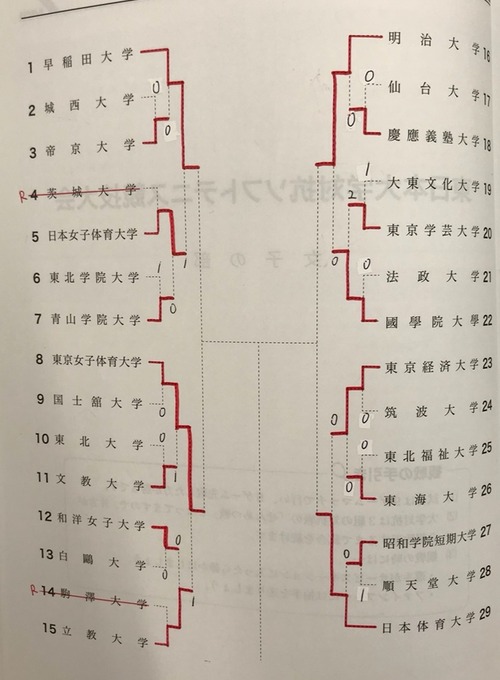 1 早稲田大学
0
2 城西大学
0
3 帝京大学
R 4 茨城大学
5 日本女子体育大学
1
6 東北学院大学
1
0
7 青山学院大学
8 東京女子体育大学
9 国士舘大学
0
10 東北大学
0
1
11 文教大学
12 和洋女子大学
0
13 白鷗大学
0
R 14 駒澤大学
1
15 立教大学
明治大学 16
0
仙台大学 17
0
慶應義塾大学 18
1
大東文化大学 19
2
東京学芸大学 20
0
0
法政大学 21
國學院大學 22
東京経済大学 23
0
0
筑波大学 24
0
東北福祉大学 25
0
東海大学 26
昭和学院短期大学 27
0
1
順天堂大学 28
日本体育大学 29